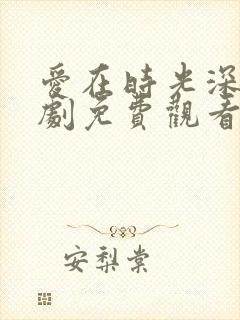 愛在時光深
劇免費觀看
安梨棠